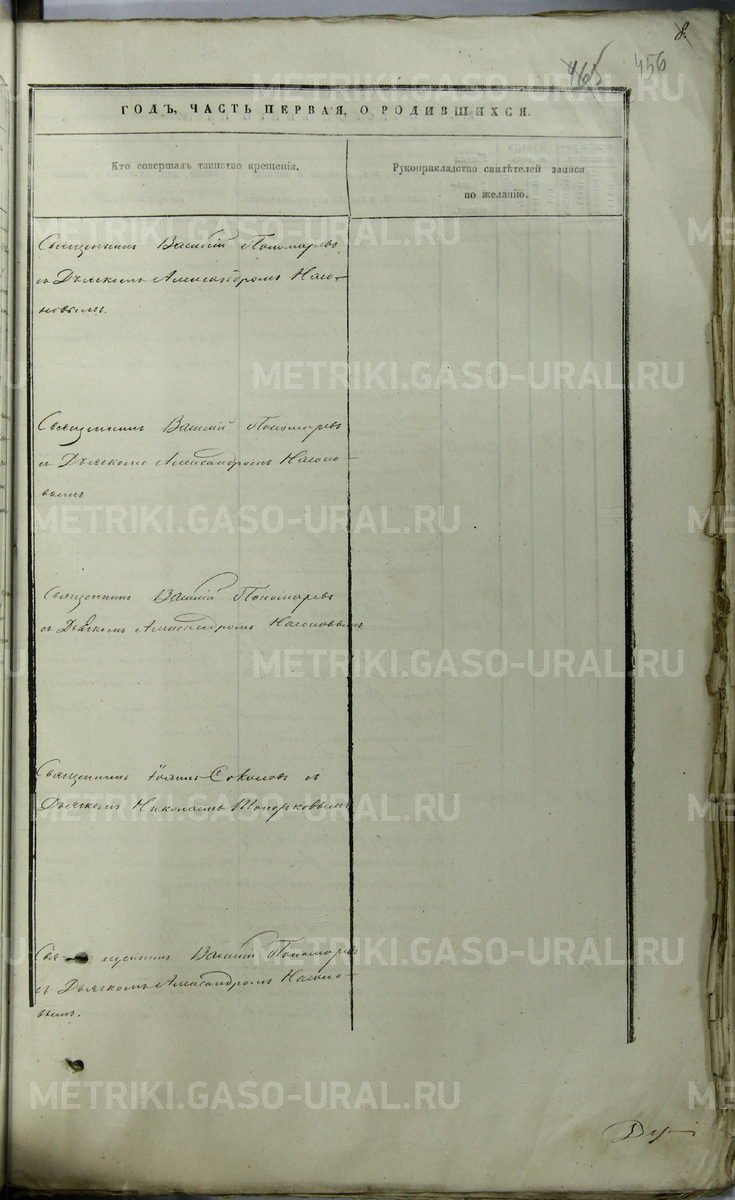 8.
465 456
ГОДЪ, ЧАСТЬ ПЕРВАЯ, О РОДИВШИХСЯ.
Кто совершалъ таинство крещенія.
Рукоприкладство свидѣтелей записи
по желанію.
Священникъ Василій Пономаревъ
съ Дьячкомъ Александромъ Насо-
новымъ.
Священникъ Василій Пономаревъ
съ Дьячкомъ Александромъ Насоно-
вымъ
Священникъ Василій Пономаревъ
съ Дьячкомъ Александромъ Насоновымъ
Священникъ Іоаннъ Соколовъ съ
Дьячкомъ Николаемъ Топорковымъ
Василій Пономаревъ
съ Дьячкомъ Александромъ Насоно-
вымъ.
METRIKI.GASO-URAL.RU